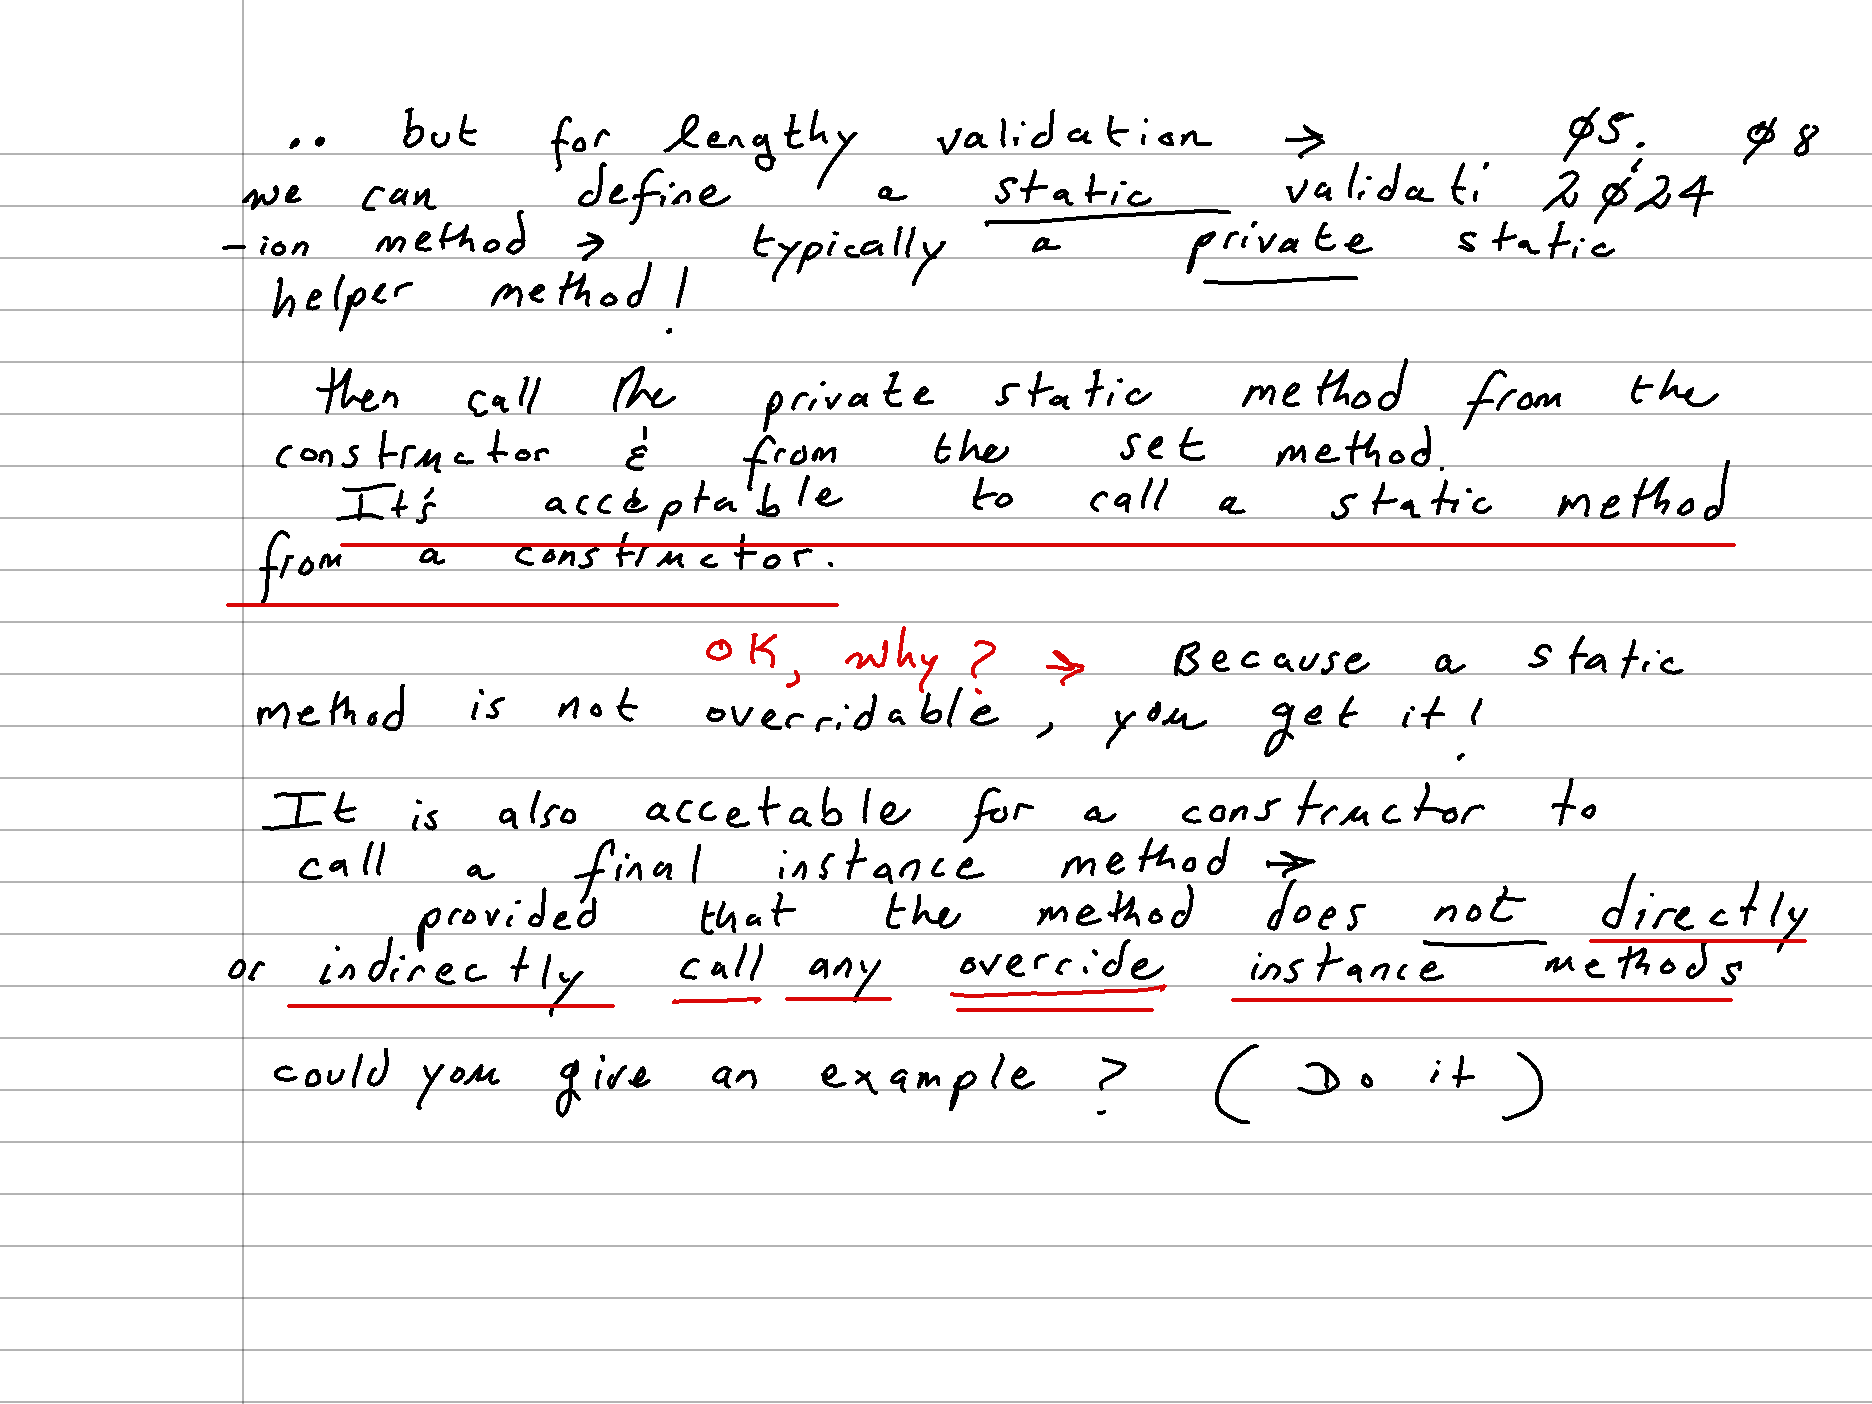 .. but for lengthy validation → 05. 08
we can define a static validati 2024
-ion method → typically a private static
helper method!
then call the private static method from the
constructor & from the set method.
It's acceptable to call a static method
from a constructor.
OK, why? → Because a static
method is not overridable, you get it!
It is also accetable for a constructor to
call a final instance method →
provided that the method does not directly
or indirectly call any override instance methods
could you give an example? (Do it)